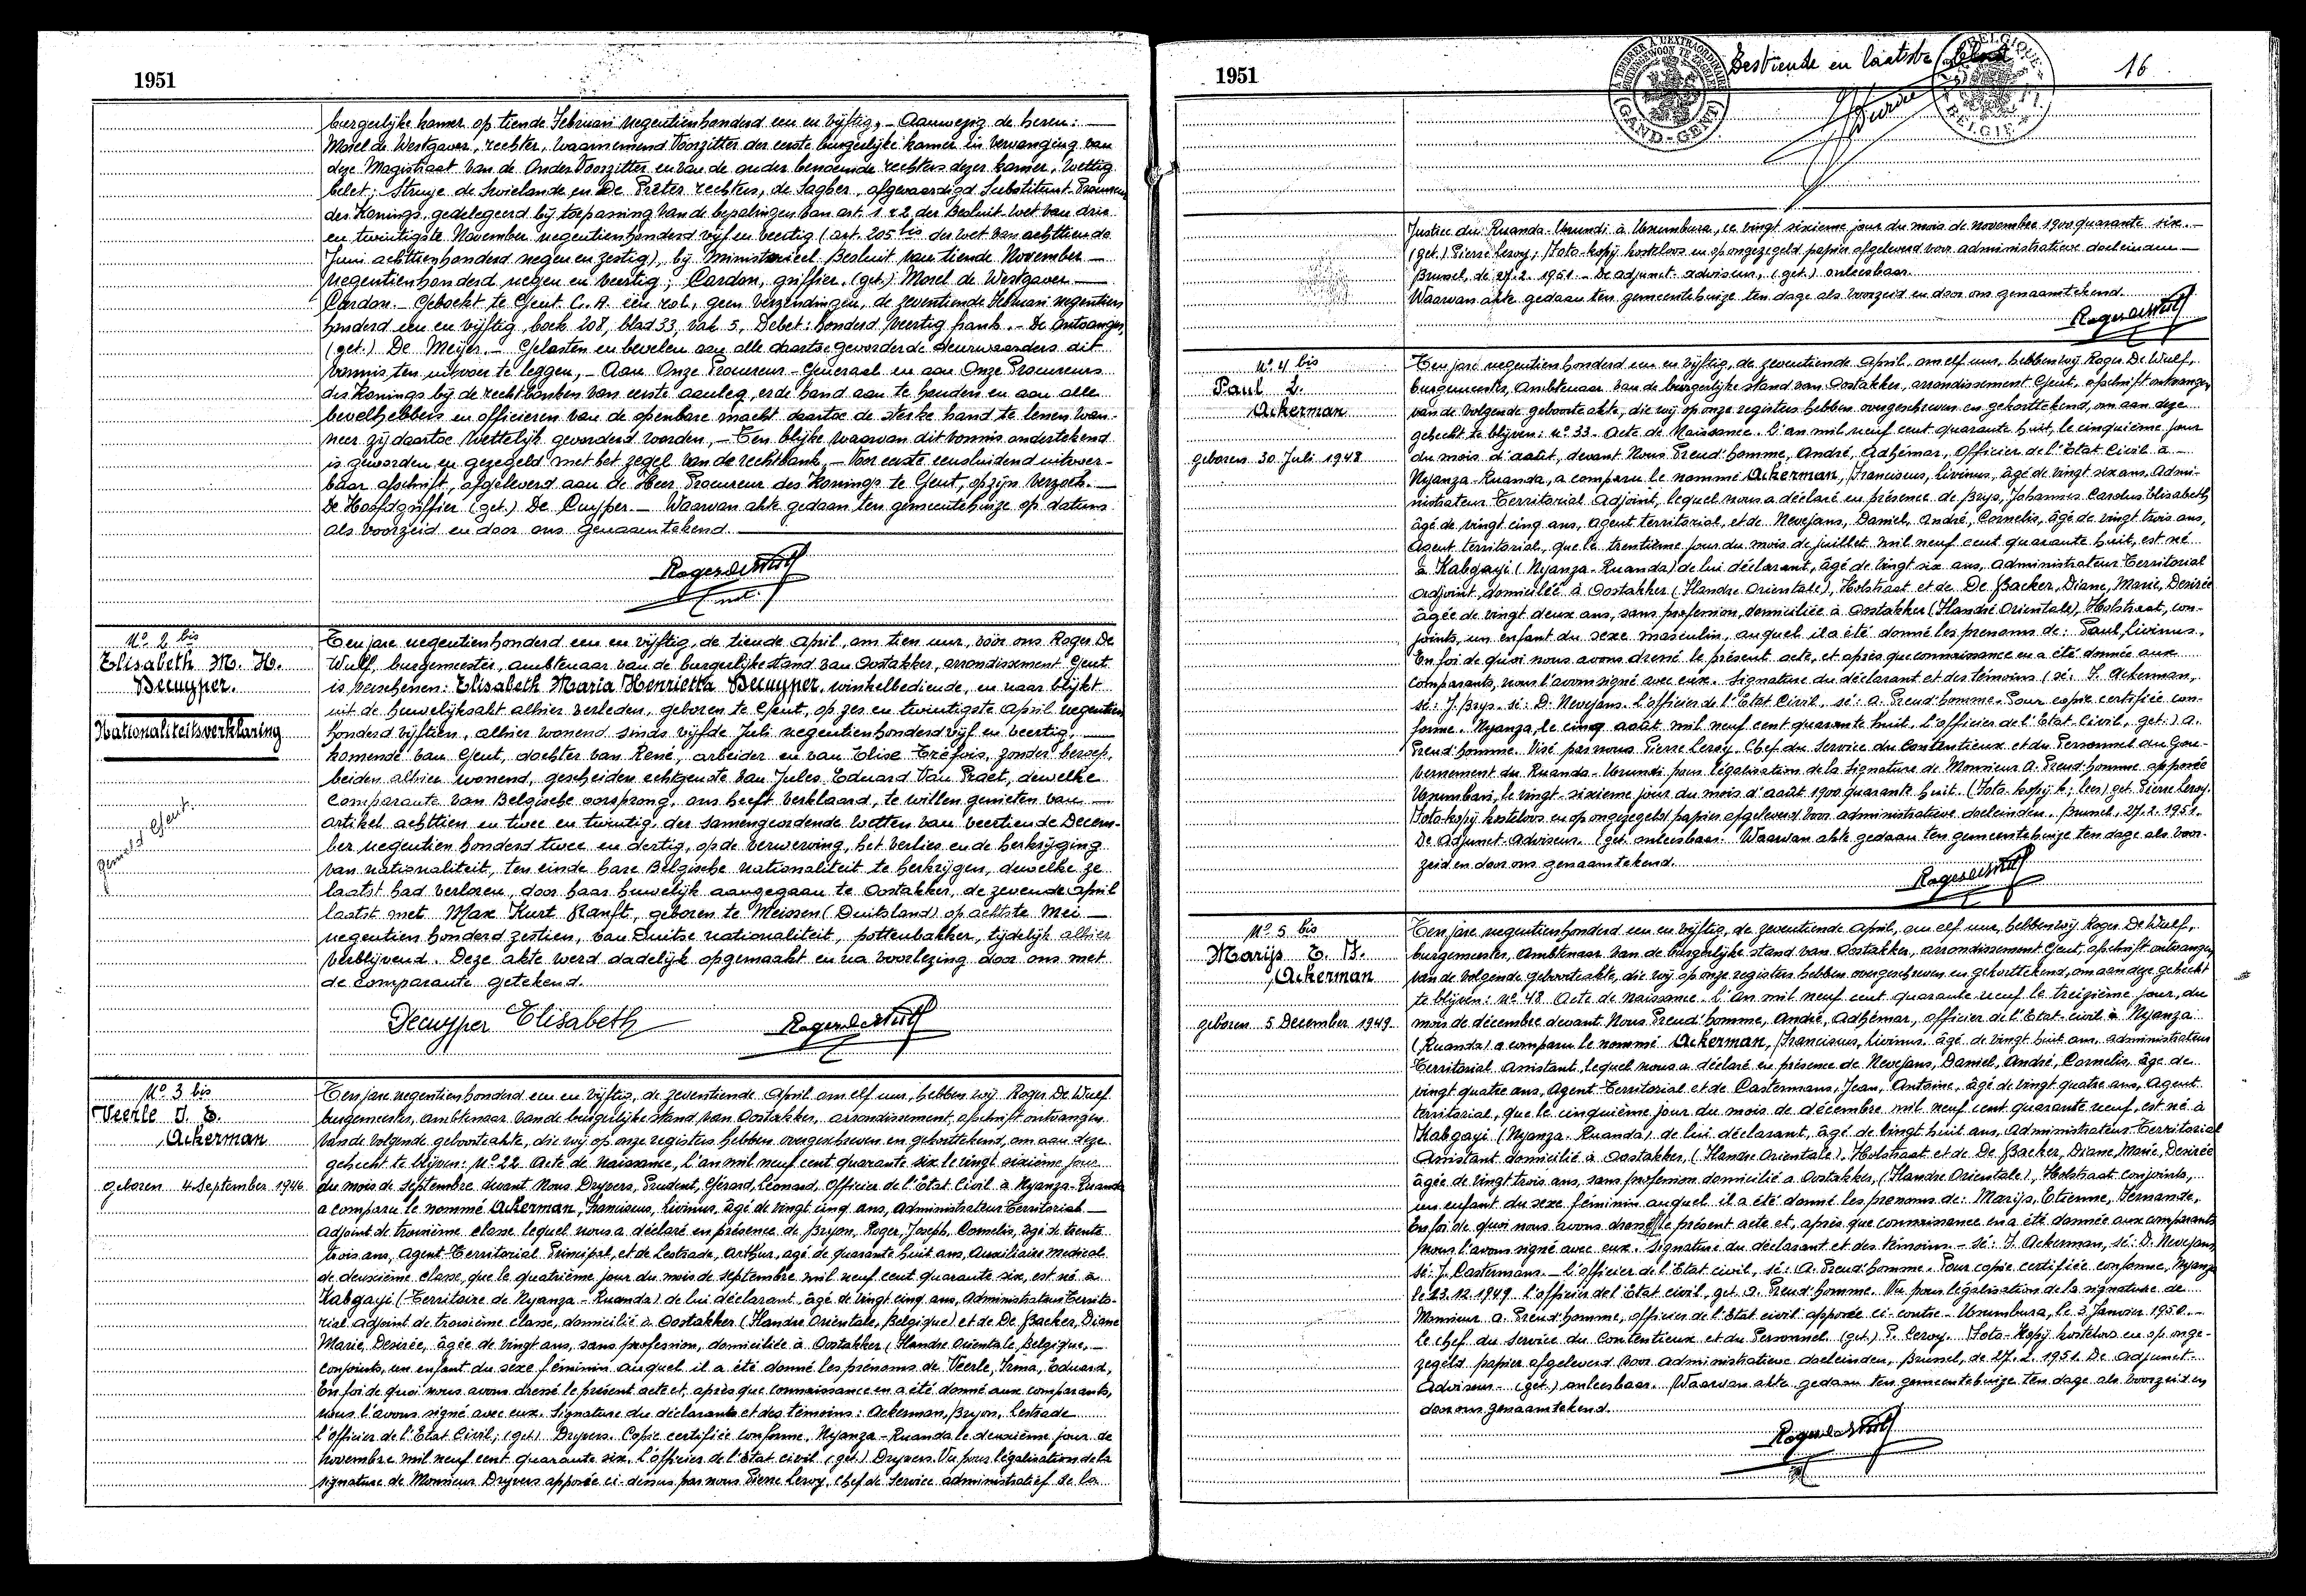 1951
burgerlijke kamer op tiende Februari negentienhonderd een en vijftig, - Aanwezig de heren:
Morel de Westgaver, rechter, waarnemend Voorzitter der eerste burgerlijke kamer in vervanging van
deze Magistraat van de Onder Voorzitter en van de ouder benoemde rechters dezer kamer, wettig
belet; Struye de Swielande, en De Preter rechters, de Sagher, afgevaardigd Substituut-Procureur
des Konings, gedelegeerd bij toepassing van de bepalingen van art. 1 & 2 der Besluit-Wet van drie
en twintigste November negentienhonderd vijf en veertig (art. 205 bis der wet van achttiende
Juni achttienhonderd negen en zestig), bij Ministerieel Besluit van tiende November
negentienhonderd negen en veertig; Cardon, griffier. (get.) Morel de Westgaver
Cardon. - Geboekt te Gent. C.A. een rol, geen verzendingen, de zeventiende Februari negentien
honderd een en vijftig, boek 208, blad 33, vak 5, Debet: honderd veertig frank. - De Ontvanger,
(get.) De Meijer. - Gelasten en bevelen aan alle daartoe gevorderde deurwaarders dit
vonnis, ten uitvoer te leggen, - Aan Onze Procureur-Generaal en aan Onze Procureurs
des Konings bij de rechtbanken van eerste aanleg, er de hand aan te houden en aan alle
bevelhebbers en officieren van de openbare macht daartoe de sterke hand te lenen wan-
neer zij daartoe wettelijk gevorderd worden, - Ten blijke waarvan dit vonnis ondertekend
is geworden en gezegeld met het zegel van de rechtbank, - Voor eerste eensluidend uitvoer-
baar afschrift, afgeleverd aan de Heer Procureur des Konings te Gent, op zijn verzoek.
De Hoofdgriffier (get.) De Cuyper. - Waarvan akte gedaan ten gemeentehuize op datum
als voorzeid en door ons genaamtekend
Roger De Wulf
No 2 bis
Elisabeth M. H.
Decuyper.
Nationaliteitsverklaring
Gemeld Gent.
Ten jare negentienhonderd een en vijftig, de tiende April, om tien uur, voor ons Roger De
Wulf, burgemeester, ambtenaar van de burgerlijke stand van Oostakker, arrondissement Gent
is verschenen: Elisabeth Maria Henrietta Decuyper, winkelbediende, en naar blijkt
uit de huwelijksakt alhier verleden, geboren te Gent, op zes en twintigste April negentien
honderd vijftien, alhier wonend sinds vijfde Juli negentienhonderd vijf en veertig,
komende van Gent, dochter van René, arbeider en van Elise Tréfois, zonder beroep,
beiden alhier wonend, gescheiden echtgenote van Jules Eduard Van Praet, dewelke
comparante van Belgische oorsprong, ons heeft verklaard, te willen genieten van
artikel achttien en twee en twintig, der samengeordende Wetten van veertiende Decem-
ber negentien honderd twee en dertig, op de verwerving, het verlies en de herkrijging
van nationaliteit, ten einde hare Belgische nationaliteit te herkrijgen, dewelke ze
laatst had verloren, door haar huwelijk aangegaan te Oostakker, de zevende April
laatst met Max Kurt Ranft, geboren te Meissen (Duitsland) op achtste Mei
negentien honderd zestien, van Duitse nationaliteit, pottenbakker, tijdelijk alhier
verblijvend. Deze akte werd dadelijk opgemaakt en na voorlezing door ons met
de comparante getekend.
Decuyper Elisabeth Roger De Wulf
No 3 bis
Veerle I. E.
Ackerman
geboren 4 September 1946
Ten jare negentienhonderd een en vijftig, de zeventiende April om elf uur, hebben wij Roger De Wulf
burgemeester, ambtenaar van de burgerlijke stand van Oostakker, arrondissement, afschrift ontvangen
van de volgende geboorteakte, die wij op onze registers hebben overgeschreven en gekorttekend, om aan deze
gehecht te blijven: No 22 Acte de Naissance, L'an mil neuf cent quarante six le vingt sixième jour
du mois de septembre devant Nous Dryvers, Prudent, Gérard, Léonard, Officier de l'Etat Civil à Nyanza-Ruanda
a comparu le nommé Ackerman, Franciscus, Livinus, âgé de vingt cinq ans, Administrateur Territorial
adjoint de troisième classe lequel nous a déclaré en présence de Bryon, Roger, Joseph, Cornelis, âgé de trente
trois ans, Agent Territorial Principal, et de Lestrade, Arthur, agé de quarante huit ans, Auxiliaire medical
de deuxième classe, que le quatrième jour du mois de septembre mil neuf cent quarante six, est né à
Kabgayi (Territoire de Nyanza - Ruanda) de lui déclarant, âgé de vingt cinq ans, Administrateur Territo-
rial adjoint de troisième classe, domicilié à Oostakker (Flandre Orientale, Belgique) et de De Backer, Diane
Marie, Desirée, âgée de vingt ans, sans profession, domiciliée à Oostakker (Flandre Orientale Belgique,
conjoints, un enfant du sexe féminin auquel il a été donné les prénoms de Veerle, Irma, Eduard,
En foi de quoi nous avons dressé le présent acte et, après que connaissance en a été donné aux comparants,
nous l'avons signé avec eux. Signature du déclarants et des témoins: Ackerman, Bryon, Lestrade
L'officier de l'Etat Civil; (get) Dryvers. Copie certifiée conforme, Nyanza - Ruanda le deuxième jour de
Novembre mil neuf cent quarante six. L'officier de l'Etat civil (get.) Dryvers. Vu pour légalisation de la
signature de Monsieur Dryvers apposée ci-dessus par nous Pierre Leroy, Chef de Service administratief de la
1951
A TIMBRER A L'EXTRAORDINAIRE
GAND-GENT
Zestiende en laatste blad
BELGIQUE
BELGIE
16
Justice du Ruanda-Urundi à Usumbura, ce vingt sixieme jour du mois de novembre 1900 quarante six. -
(get.) Pierre Leroy; Foto-kopij kosteloos en op ongezegeld papier afgeleverd voor administratieve doeleinden
Brussel, de 27.2.1951. - De adjunct-adviseur, (get.) onleesbaar.
Waarvan akte gedaan ten gemeentehuize ten dage als voorzeid en door ons genaamtekend.
Roger De Wulf
No 4 bis
Paul L.
Ackerman
geboren 30 Juli 1948
Ten jare negentienhonderd een en vijftig, de zeventiende April, om elf uur, hebben wij Roger De Wulf,
burgemeester, ambtenaar van de burgerlijke stand van Oostakker, arrondissement Gent, afschrift ontvangen
van de volgende geboorteakte, die wij op onze registers hebben overgeschreven en gekorttekend, om aan deze
gehecht te blijven: No 33. Acte de Naissance. L'an mil neuf cent quarante huit, le cinquième jour
du mois d'août, devant Nous Preud'homme, André, Adhémar, Officier de l'Etat Civil à
Nyanza-Ruanda, a comparu le nommé Ackerman, Franciscus, Livinus, âgé de vingt six ans, Admi-
nistrateur Territorial Adjoint, lequel nous a déclaré en présence de Brys, Johannes Carolus Elisabeth
âgé de vingt cinq ans, agent territorial, et de Nevejans, Daniel, André, Cornelis, âgé de vingt trois ans,
Agent territorial, que le trentième jour du mois de juillet mil neuf cent quarante huit, est né
à Kabgayi (Nyanza-Ruanda) de lui déclarant, âgé de vingt six ans, administrateur Territorial
adjoint, domicilié à Oostakker (Flandre Orientale), Holstraat et de De Backer, Diane, Marie, Desirée
âgée de vingt deux ans, sans profession, domiciliée à Oostakker (Flandre Orientale), Holstraat, con-
joints, un enfant du sexe masculin, auquel il a été donné les prenoms de: Paul, Livinus,
En foi de quoi nous avons dressé le présent acte, et après que connaissance en a été donnée aux
comparants, nous l'avons signé avec eux. Signature du déclarant et des témoins (sé: F. Ackerman,
sé: J. Brys. sé: D. Nevejans. L'officier de l'Etat Civil, sé: A. Preud'homme. Pour copie certifiée con-
forme. Nyanza, le cinq août mil neuf cent quarante huit. L'officier de l'Etat Civil, get.) A.
Preud'homme. Visé par nous Pierre Leroy Chef du Service du Contentieux et du Personnel au Gou-
vernement du Ruanda-Urundi pour légalisation de la signature de Monsieur A. Preud'homme apposée
Usumbara, le vingt-sixieme jour du mois d'août 1900 quarante huit. (Foto-kopij k; lees) get. Pierre Leroy.
Foto-kopij kosteloos en op ongezegeld papier afgeleverd voor administratieve doeleinden. Brussel, 27.2.1951.
De Adjunct-Adviseur. (get. onleesbaar. Waarvan akte gedaan ten gemeentehuize ten dage als voor-
zeid en door ons genaamtekend.
Roger De Wulf
No 5 bis
Marijs E. F.
Ackerman
geboren 5 December 1949
Ten jare negentienhonderd een en vijftig, de zeventiende April, om elf uur, hebben wij Roger De Wulf,
burgemeester, ambtenaar van de burgerlijke stand van Oostakker, arrondissement Gent, afschrift ontvangen
van de volgende geboorteakte, die wij op onze registers hebben overgeschreven en gekorttekend, om aan deze gehecht
te blijven: No 48 Acte de naissance. L'An mil neuf cent quarante neuf le treizième jour, du
mois de décembre devant Nous Preud'homme, André, Adhémar, officier de l'Etat-civil à Nyanza
(Ruanda) a comparu le nommé Ackerman, Franciscus, Livinus, âgé de vingt huit ans, administrateur
Territorial Assistant, lequel nous a déclaré en présence de Nevejans, Daniel, André, Cornelis, âge de
vingt quatre ans, Agent Territorial et de Castermans, Jean, Antoine, âgé de vingt quatre ans, Agent
territorial, que le cinquième jour du mois de décembre mil neuf cent quarante neuf, est né à
Kabgayi (Nyanza-Ruanda) de lui déclarant, âgé de vingt huit ans, Administrateur Territorial
Assistant domicilié à Oostakker, (Flandre Orientale), Holstraat et de De Backer, Diane, Marie, Desirée
âgée de vingt trois ans, sans profession domicilié à Oostakker, (Flandre Orientale), Holstraat conjoints,
un enfant du sexe féminin auquel il a été donné les prenoms de: Marijs, Etienne, Fernande,
En foi de quoi nous avons dressé le présent acte et, après que connaissance en a été donnée aux comparants
nous l'avons signé avec eux. Signature du déclarant et des témoins. - Sé: F. Ackerman, sé: D. Nevejans,
sé: J. Castermans. - L'officier de l'Etat civil, sé: A. Preud'homme. Pour copie certifiée conforme, Nyanza
le 13.12.1949. L'officier de l'Etat civil, get. A. Preud'homme. Vu pour légalisation de la signature de
Monsieur A. Preud'homme, officier de l'Etat civil apposée ci-contre - Usumbura, le 3 Janvier 1950. -
Le Chef du Service du Contentieux et du Personnel (get.) P. Leroy. Foto-Kopij kosteloos en op onge-
zegeld papier afgeleverd voor administratieve doeleinden, Brussel, de 27.2.1951. De Adjunct-
Adviseur - (get.) onleesbaar. Waarvan akte gedaan ten gemeentehuize ten dage als voorzeid en
door ons genaamtekend.
Roger De Wulf